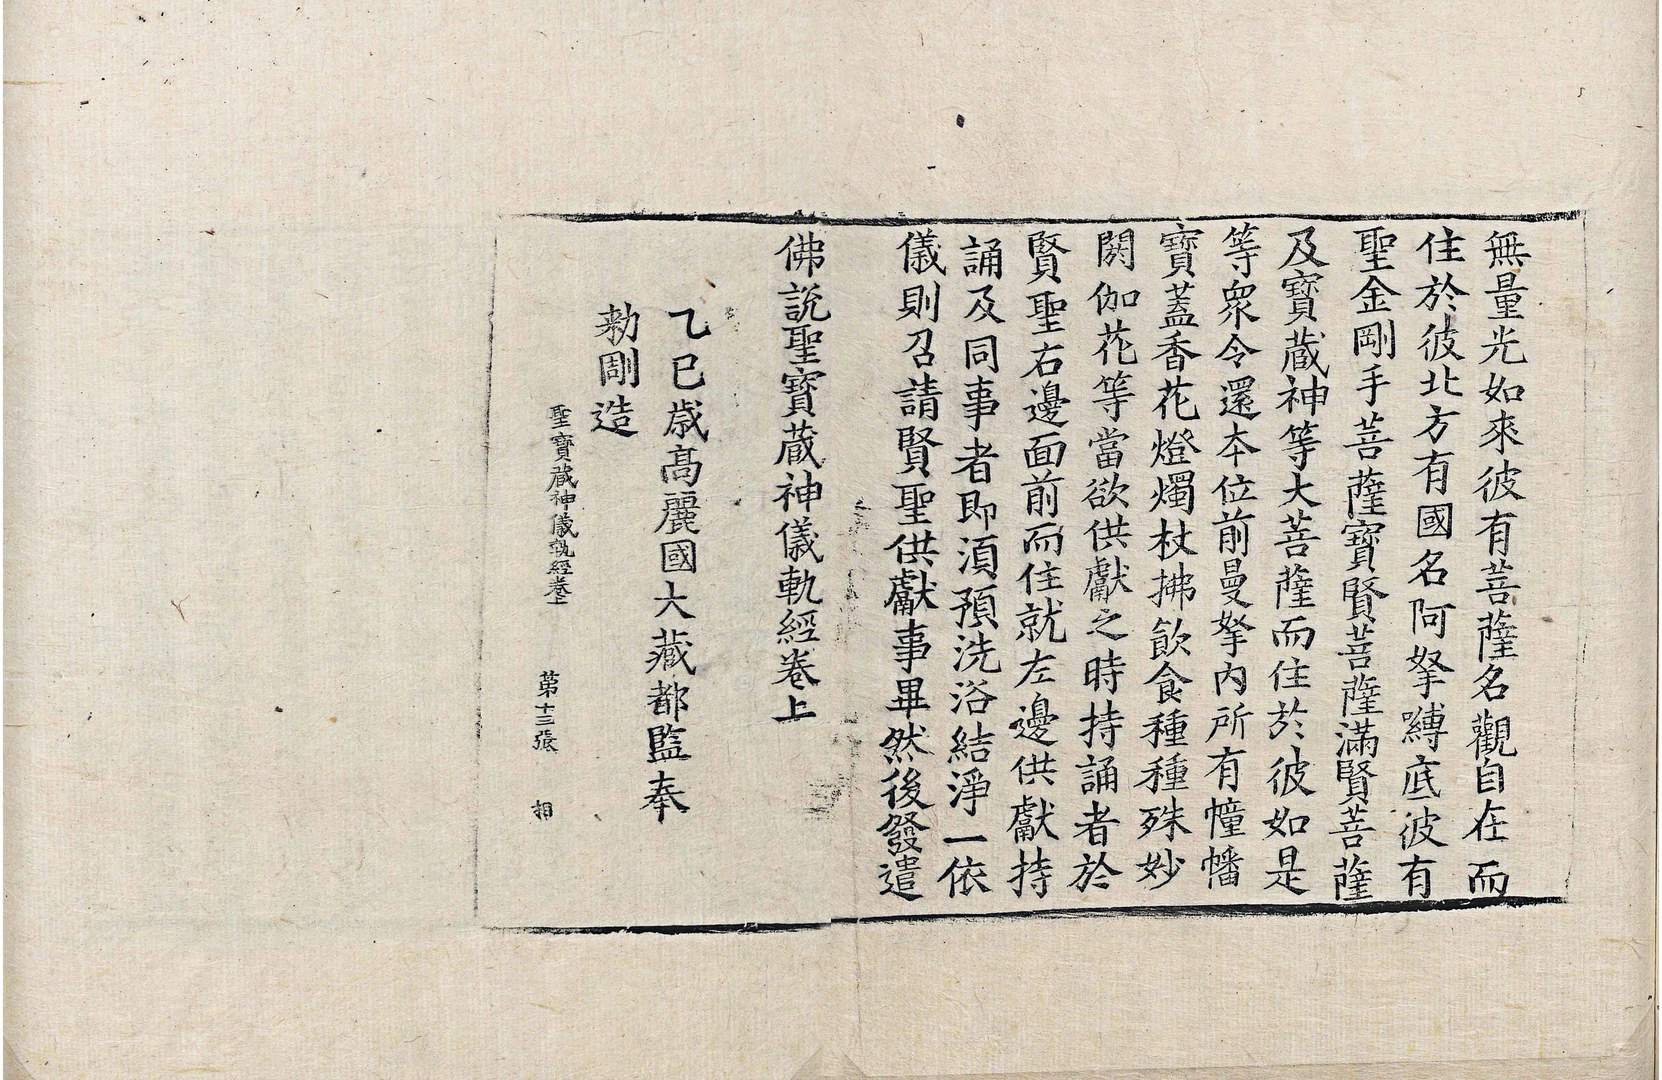 無量光如來彼有菩薩名觀自在而
住於彼北方有國名阿拏嚩底彼有
聖金剛手菩薩寶賢菩薩滿賢菩薩
及寶蔵神等大菩薩而住於彼如是
等衆令還本位前曼拏內所有幢幡
寶蓋香花燈燭杖拂飲食種種殊妙
閼伽花等當欲供獻之時持誦者於
賢聖右邊面前而住就左邊供獻持
誦及同事者即湏預洗浴結淨一依
儀則召請賢聖供獻事畢然後發遣
佛說聖寶蔵神儀軌經卷上
乙巳歲高麗國大藏都監奉
勅彫造
聖寶蔵神儀軌經卷上　第十三張　相